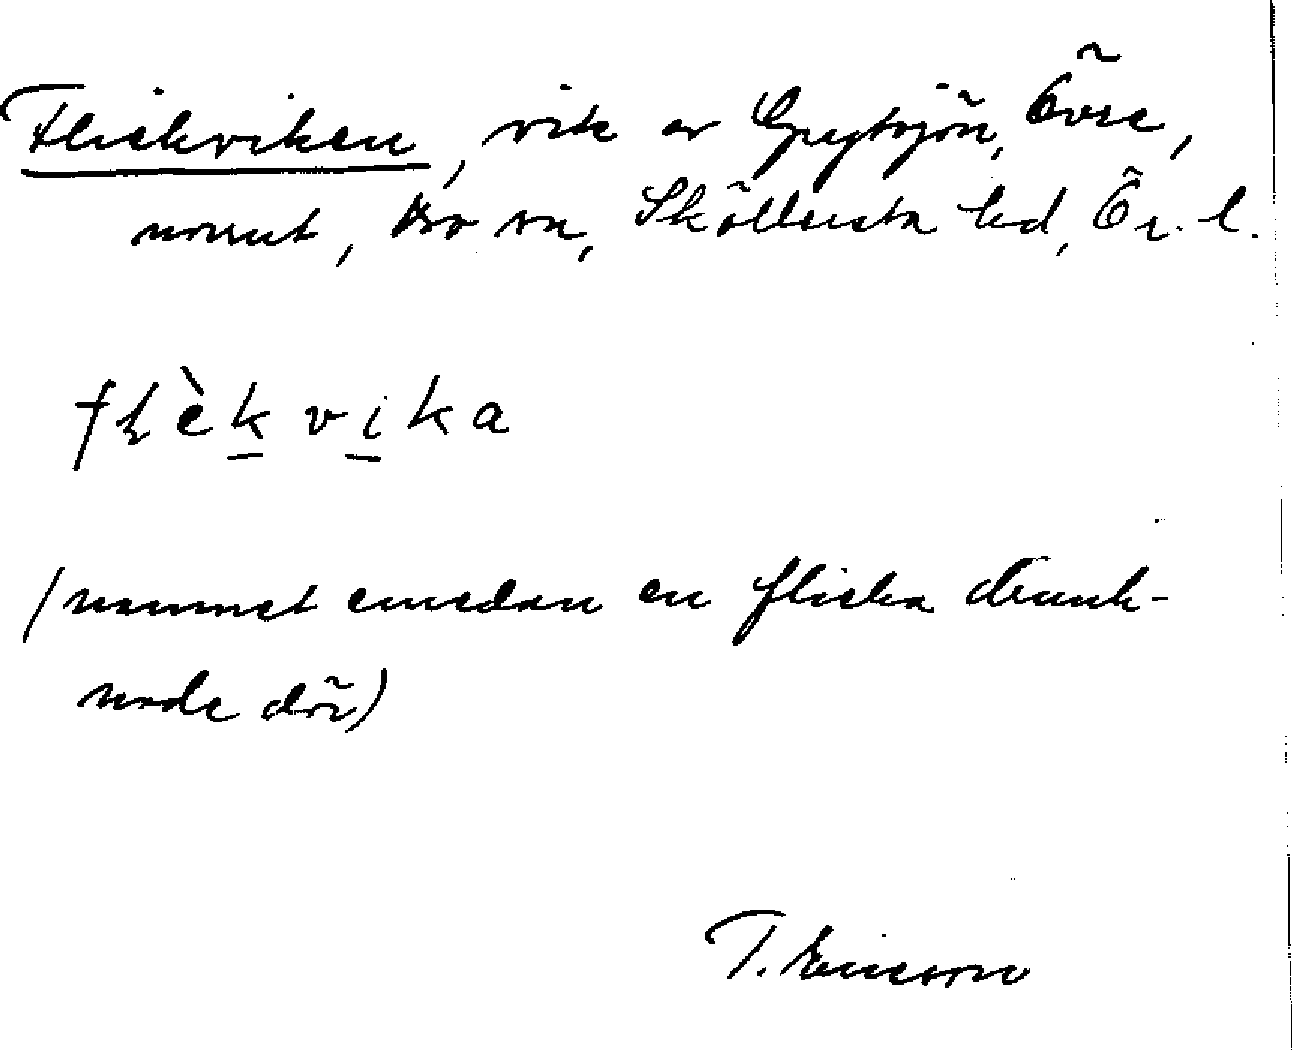 Flickviken, vik av Grytsjön, Övre,
norrut, Bo sn, Sköllersta hd, Ör. l.
fɫèk vika
(namnet emedan en flicka drunk-
nade där)
T. Ericsson